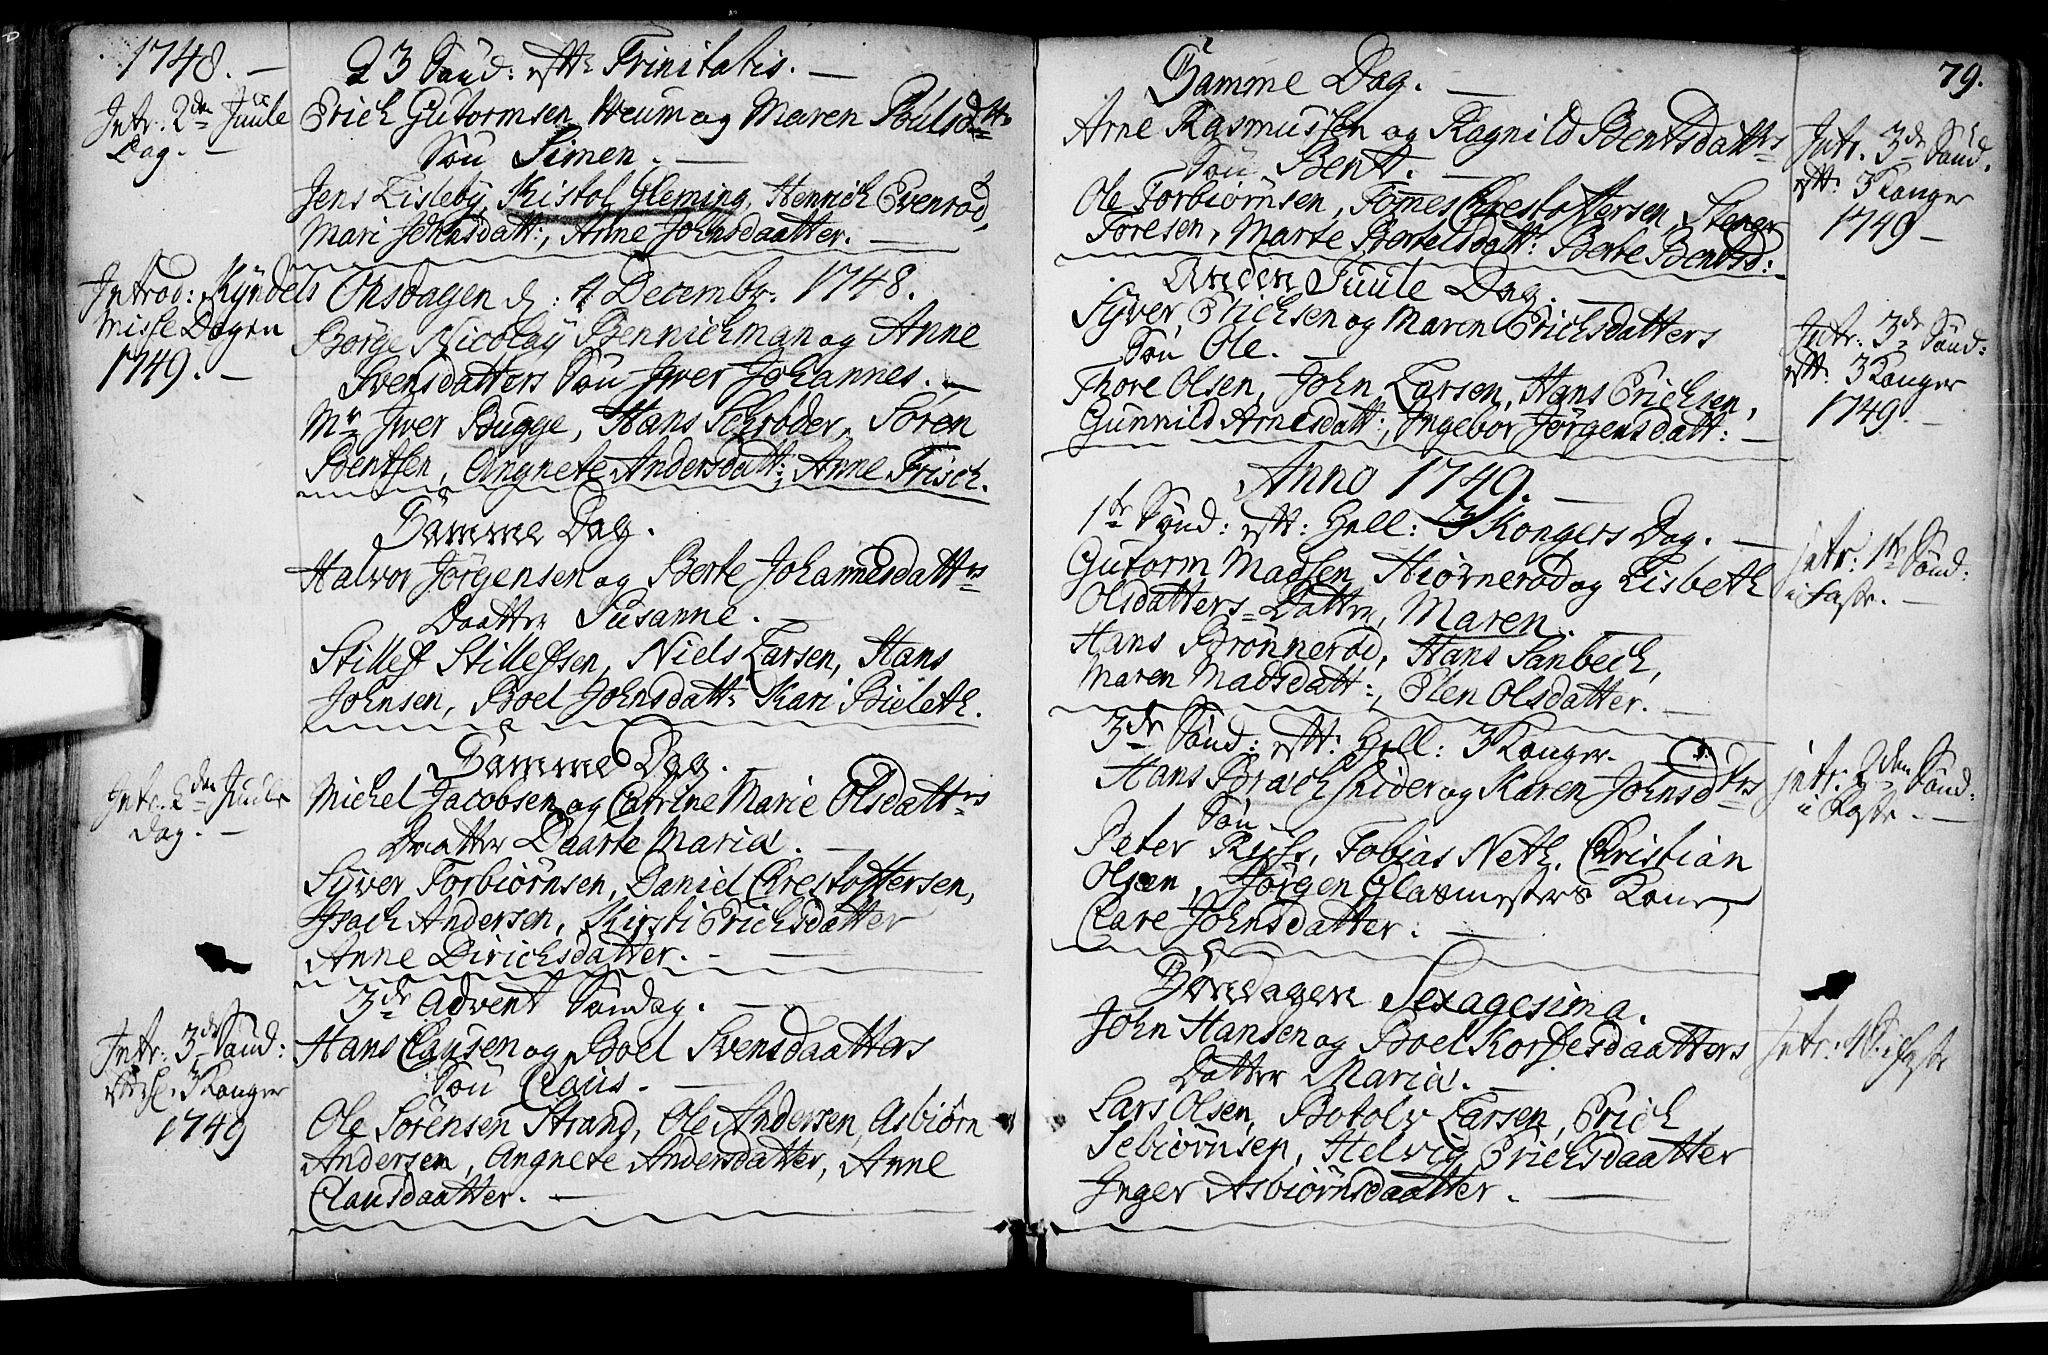 1748. —
Intr. 2den Juule
Dag. —
23 Sønd: efft. Trinitatis. —
Erich Gutormsen Heum og Maren Poulsdttrs
Søn Simen. —
Jens Lisleby, Kristol Gleming, Henrich Evenrød,
Mari Johnsdatt:, Anne Johnsdaatter. —
Introd: Kyndels
Misse Dagen
1749. —
Onsdagen d: 4 Decembr. 1748.
Børge Nicolay Bennichman og Anne
Svensdatters Søn Iver Johannes. —
Mr Iver Bugge, Hans Schrøder, Søren
Bentsen, Angnete Andersdatt:, Anne Frisch.
Samme Dag.
Halvor Jørgensen og Berte Johannesdattrs
Daatter Susanne. —
Stillef Stillefsen, Niels Larsen, Hans
Johnsen, Boel Johnsdatt: Kari Bieleth.
Intr. 2den Juule
Dag. —
Samme Dag.
Michel Jacobsen og Catrine Marie Olsdattrs
Daatter Daarte Maria. —
Syver Torbiørnsen, Daniel Christoffersen,
Isach Andersen, Kirsti Erichsdatter
Anne Dirichsdatter. —
Intr. 3de Sønd:
efft. H. 3 Konger
1749
3de Advent Søndag. —
Hans Clausen og Boel Svensdaatters
Søn Claus. —
Ole Sørensen Strand, Ole Andersen, Asbiørn
Andersen, Angnete Andersdatter, Anne
Clausdaatter. —
79.
Samme Dag. —
Arne Rasmussen og Ragnild Bentsdattrs
Søn Bent. —
Ole Torbiørnsen, Tomes Christoffersen, Stener
Toresen, Marte Bertelsdatt: Berte Bentsd:
Intr. 3de Sønd.
efft: 3 Konger
1749 —
Anden Juule Dag. —
Syver Erichsen og Maren Erichsdatters
Søn Ole. —
Thore Olsen, John Larsen, Hans Erichsen,
Gunnild Arnesdatt:, Ingebor Jørgensdatt: —
Intr. 3de Sønd:
efft: 3 Konger
1749. —
Anno 1749. —
1te Sønd: efft: Hell: 3 Kongers Dag. —
Gutorm Madsen Hiørnerød og Lisbeth
Olsdatters Datter, Maren. —
Hans Brønnerød, Hans Sanbech,
Maren Madsdatt:, Elen Olsdatter. —
intr: 1te Sønd:
i Faste. —
3de Sønd: efft: Hell: 3 Konger. —
Hans Brach Rider og Karen Johnsdtrs
Søn
Peter Riis, Tobias Neth, Christian
Olsen, Jørgen Glasmesters Kone,
Clare Johnsdatter. —
intr. 2den Sønd:
i Faste. —
Søndagen Sexagesima.
John Hansen og Boel Korfesdaatters
Datter Maria. —
Lars Olsen, Botolv Larsen, Erich
Sebiørnsen, Helvig Erichsdaatter
Inger Asbiørnsdaatter. —
Intr: 4 S. i Faste